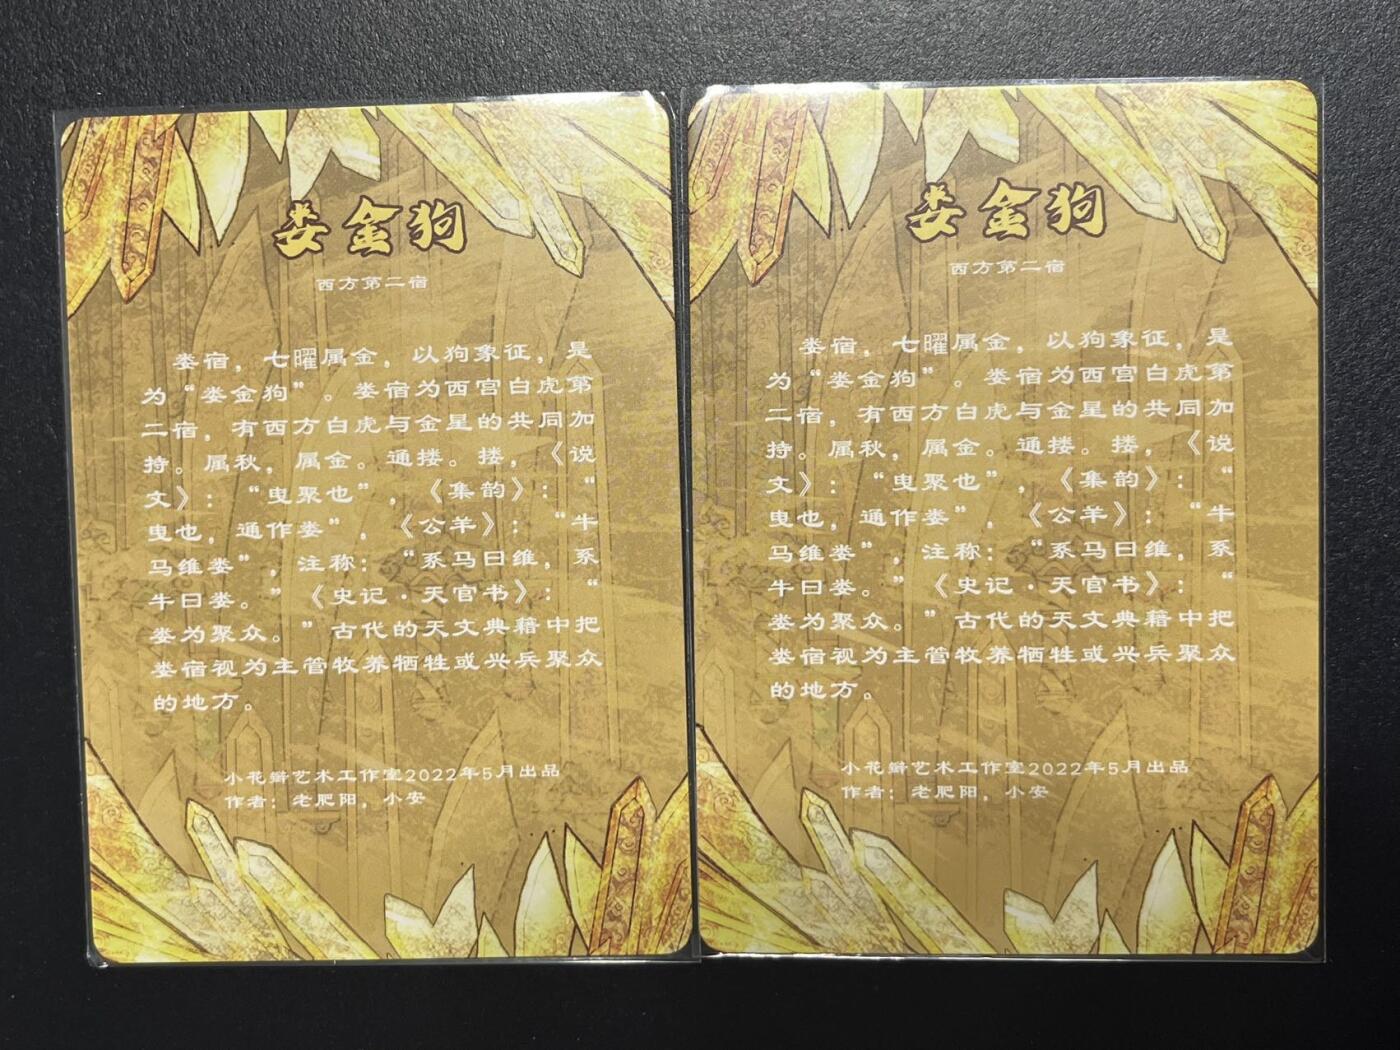 娄金狗
西方第二宿
娄宿，七曜属金，以狗象征，是
为“娄金狗”。娄宿为西宫白虎第
二宿，有西方白虎与金星的共同加
持。属秋，属金。通搂。搂，《说
文》：“曳聚也”，《集韵》：“
曳也，通作娄”，《公羊》：“牛
马维娄”，注称：“系马曰维，系
牛曰娄。”《史记·天官书》：“
娄为聚众。”古代的天文典籍中把
娄宿视为主管牧养牺牲或兴兵聚众
的地方。
小花瓣艺术工作室2022年5月出品
作者：老肥阳，小安
娄金狗
西方第二宿
娄宿，七曜属金，以狗象征，是
为“娄金狗”。娄宿为西宫白虎第
二宿，有西方白虎与金星的共同加
持。属秋，属金。通搂。搂，《说
文》：“曳聚也”，《集韵》：“
曳也，通作娄”，《公羊》：“牛
马维娄”，注称：“系马曰维，系
牛曰娄。”《史记·天官书》：“
娄为聚众。”古代的天文典籍中把
娄宿视为主管牧养牺牲或兴兵聚众
的地方。
小花瓣艺术工作室2022年5月出品
作者：老肥阳，小安